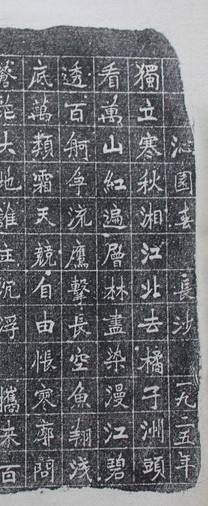 沁園春 長沙 一九二五年
獨立寒秋湘江北去橘子洲頭
看萬山紅遍層林盡染漫江碧
透百舸争流鷹擊長空魚翔浅
底萬類霜天競自由悵寥廓問
蒼茫大地誰主沉浮 攜來百